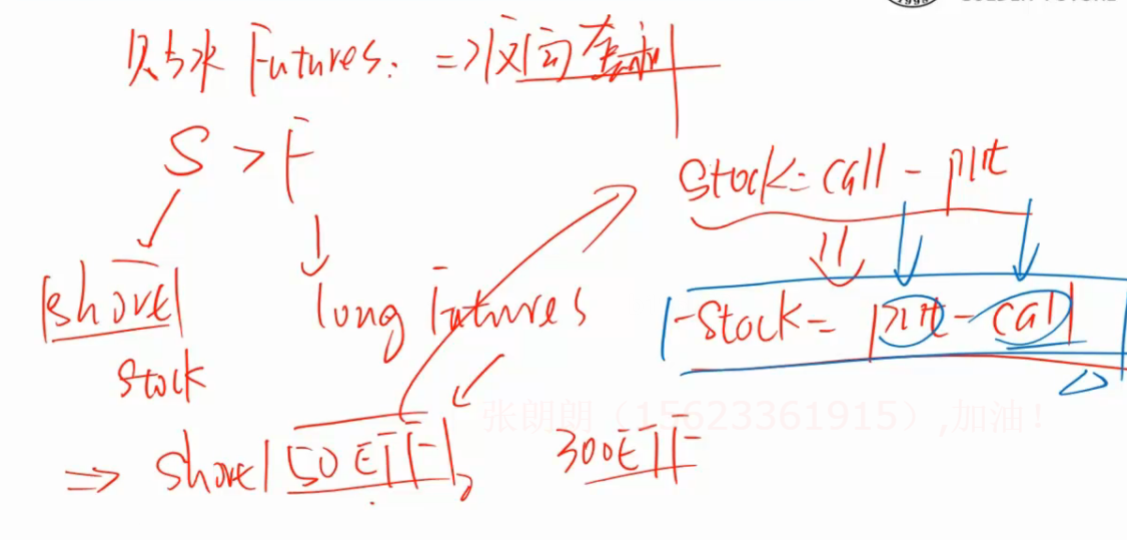 贴水 Futures. => 反向套利
S > F
short stock
long Futures
=> short 50ETF, 300ETF
Stock = call - put
-Stock = put - call
张朗朗（15623361915）,加油！